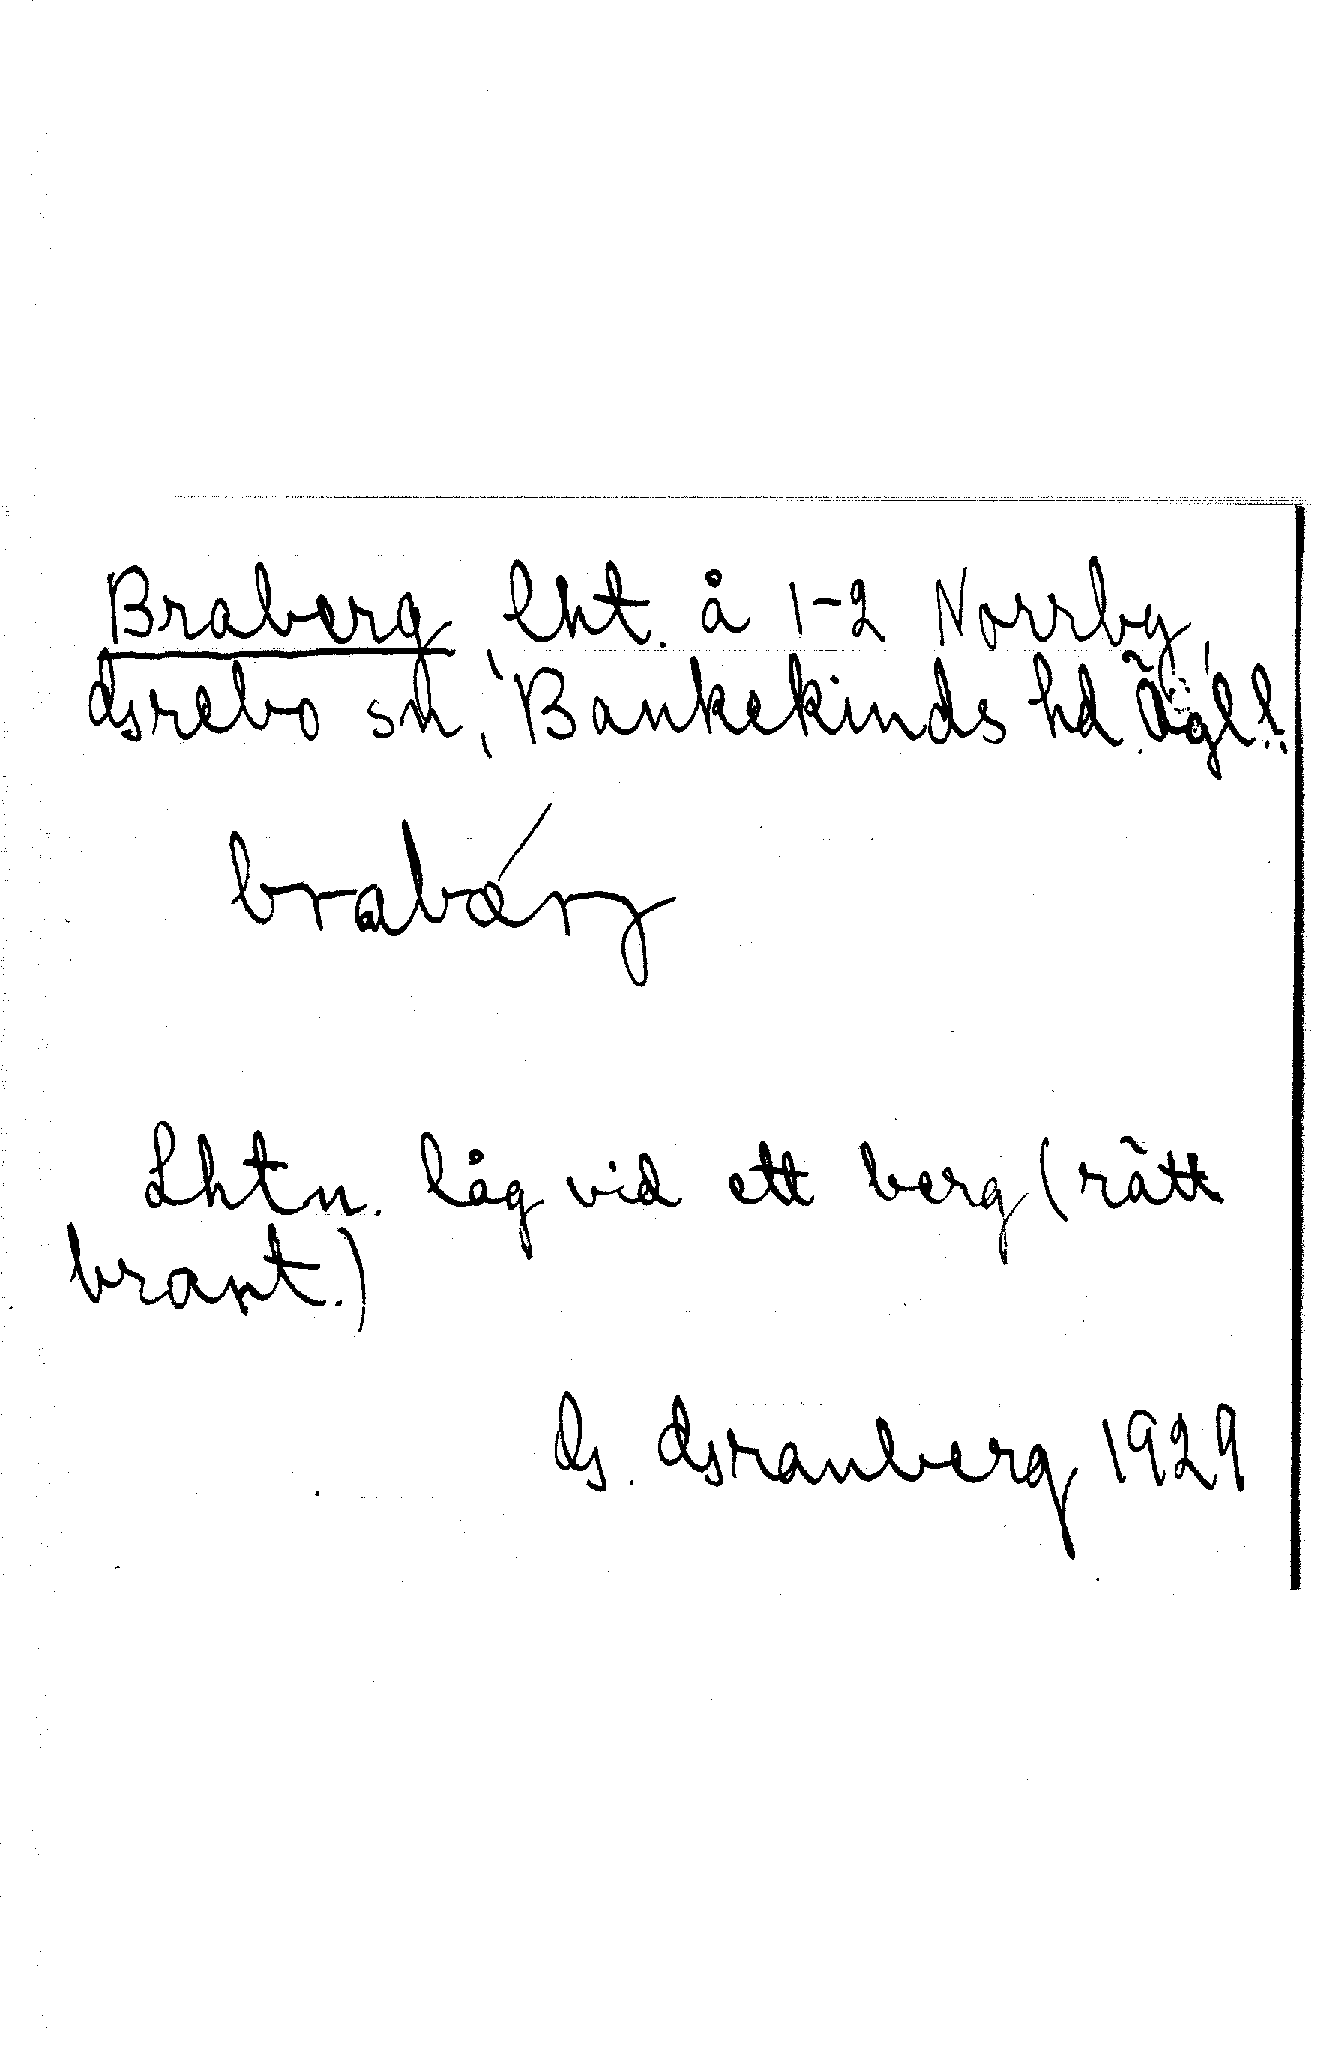 Braberg, lht. å 1-2 Norrby,
Grebo sn, Bankekinds hd. Ögl.
brabärg
Lhtn. låg vid ett berg (rätt
brant.)
G. Granberg 1929